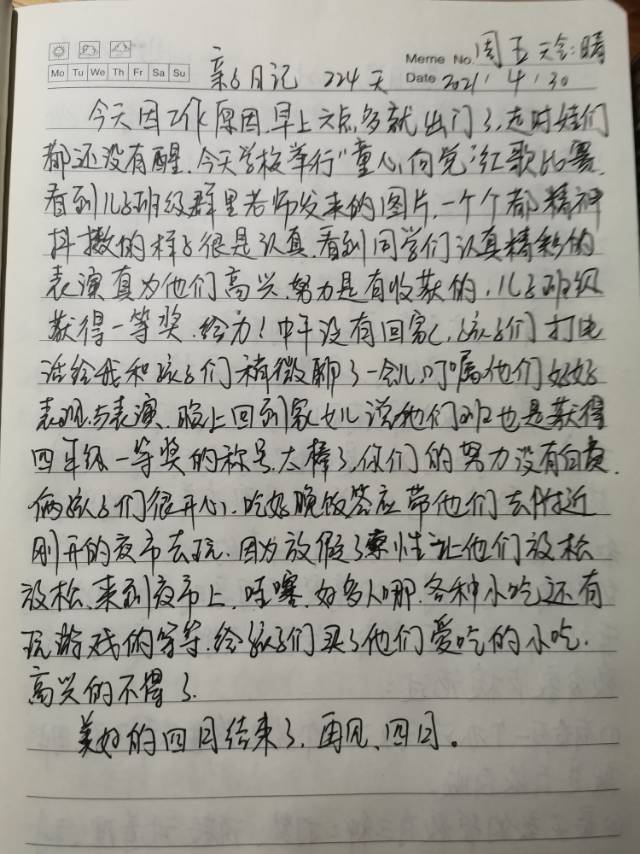 Meme No. 周五 天气:晴
Mo Tu We Th Fr Sa Su
亲子日记 224天 Date 2021/4/30
今天因工作原因,早上六点多就出门了,走时娃们
都还没有醒,今天学校举行“童心向党”红歌比赛,
看到儿子班级群里老师发来的图片,一个个都精神
抖擞的样子很是认真,看到同学们认真精彩的
表演真为他们高兴,努力是有收获的,儿子班级
获得一等奖,给力!中午没有回家,孩子们打电
话给我和孩子们稍微聊了一会儿,叮嘱他们好好
表现与表演,晚上回到家女儿说他们班也是获得
四年级一等奖的称号,太棒了,你们的努力没有白费,
俩孩子们很开心,吃好晚饭答应带他们去附近
刚开的夜市去玩,因为放假了索性让他们放松
放松,来到夜市上,哇塞,好多人哪,各种小吃还有
玩游戏的等等,给孩子们买了他们爱吃的小吃,
高兴的不得了.
美好的四月结束了,再见,四月。